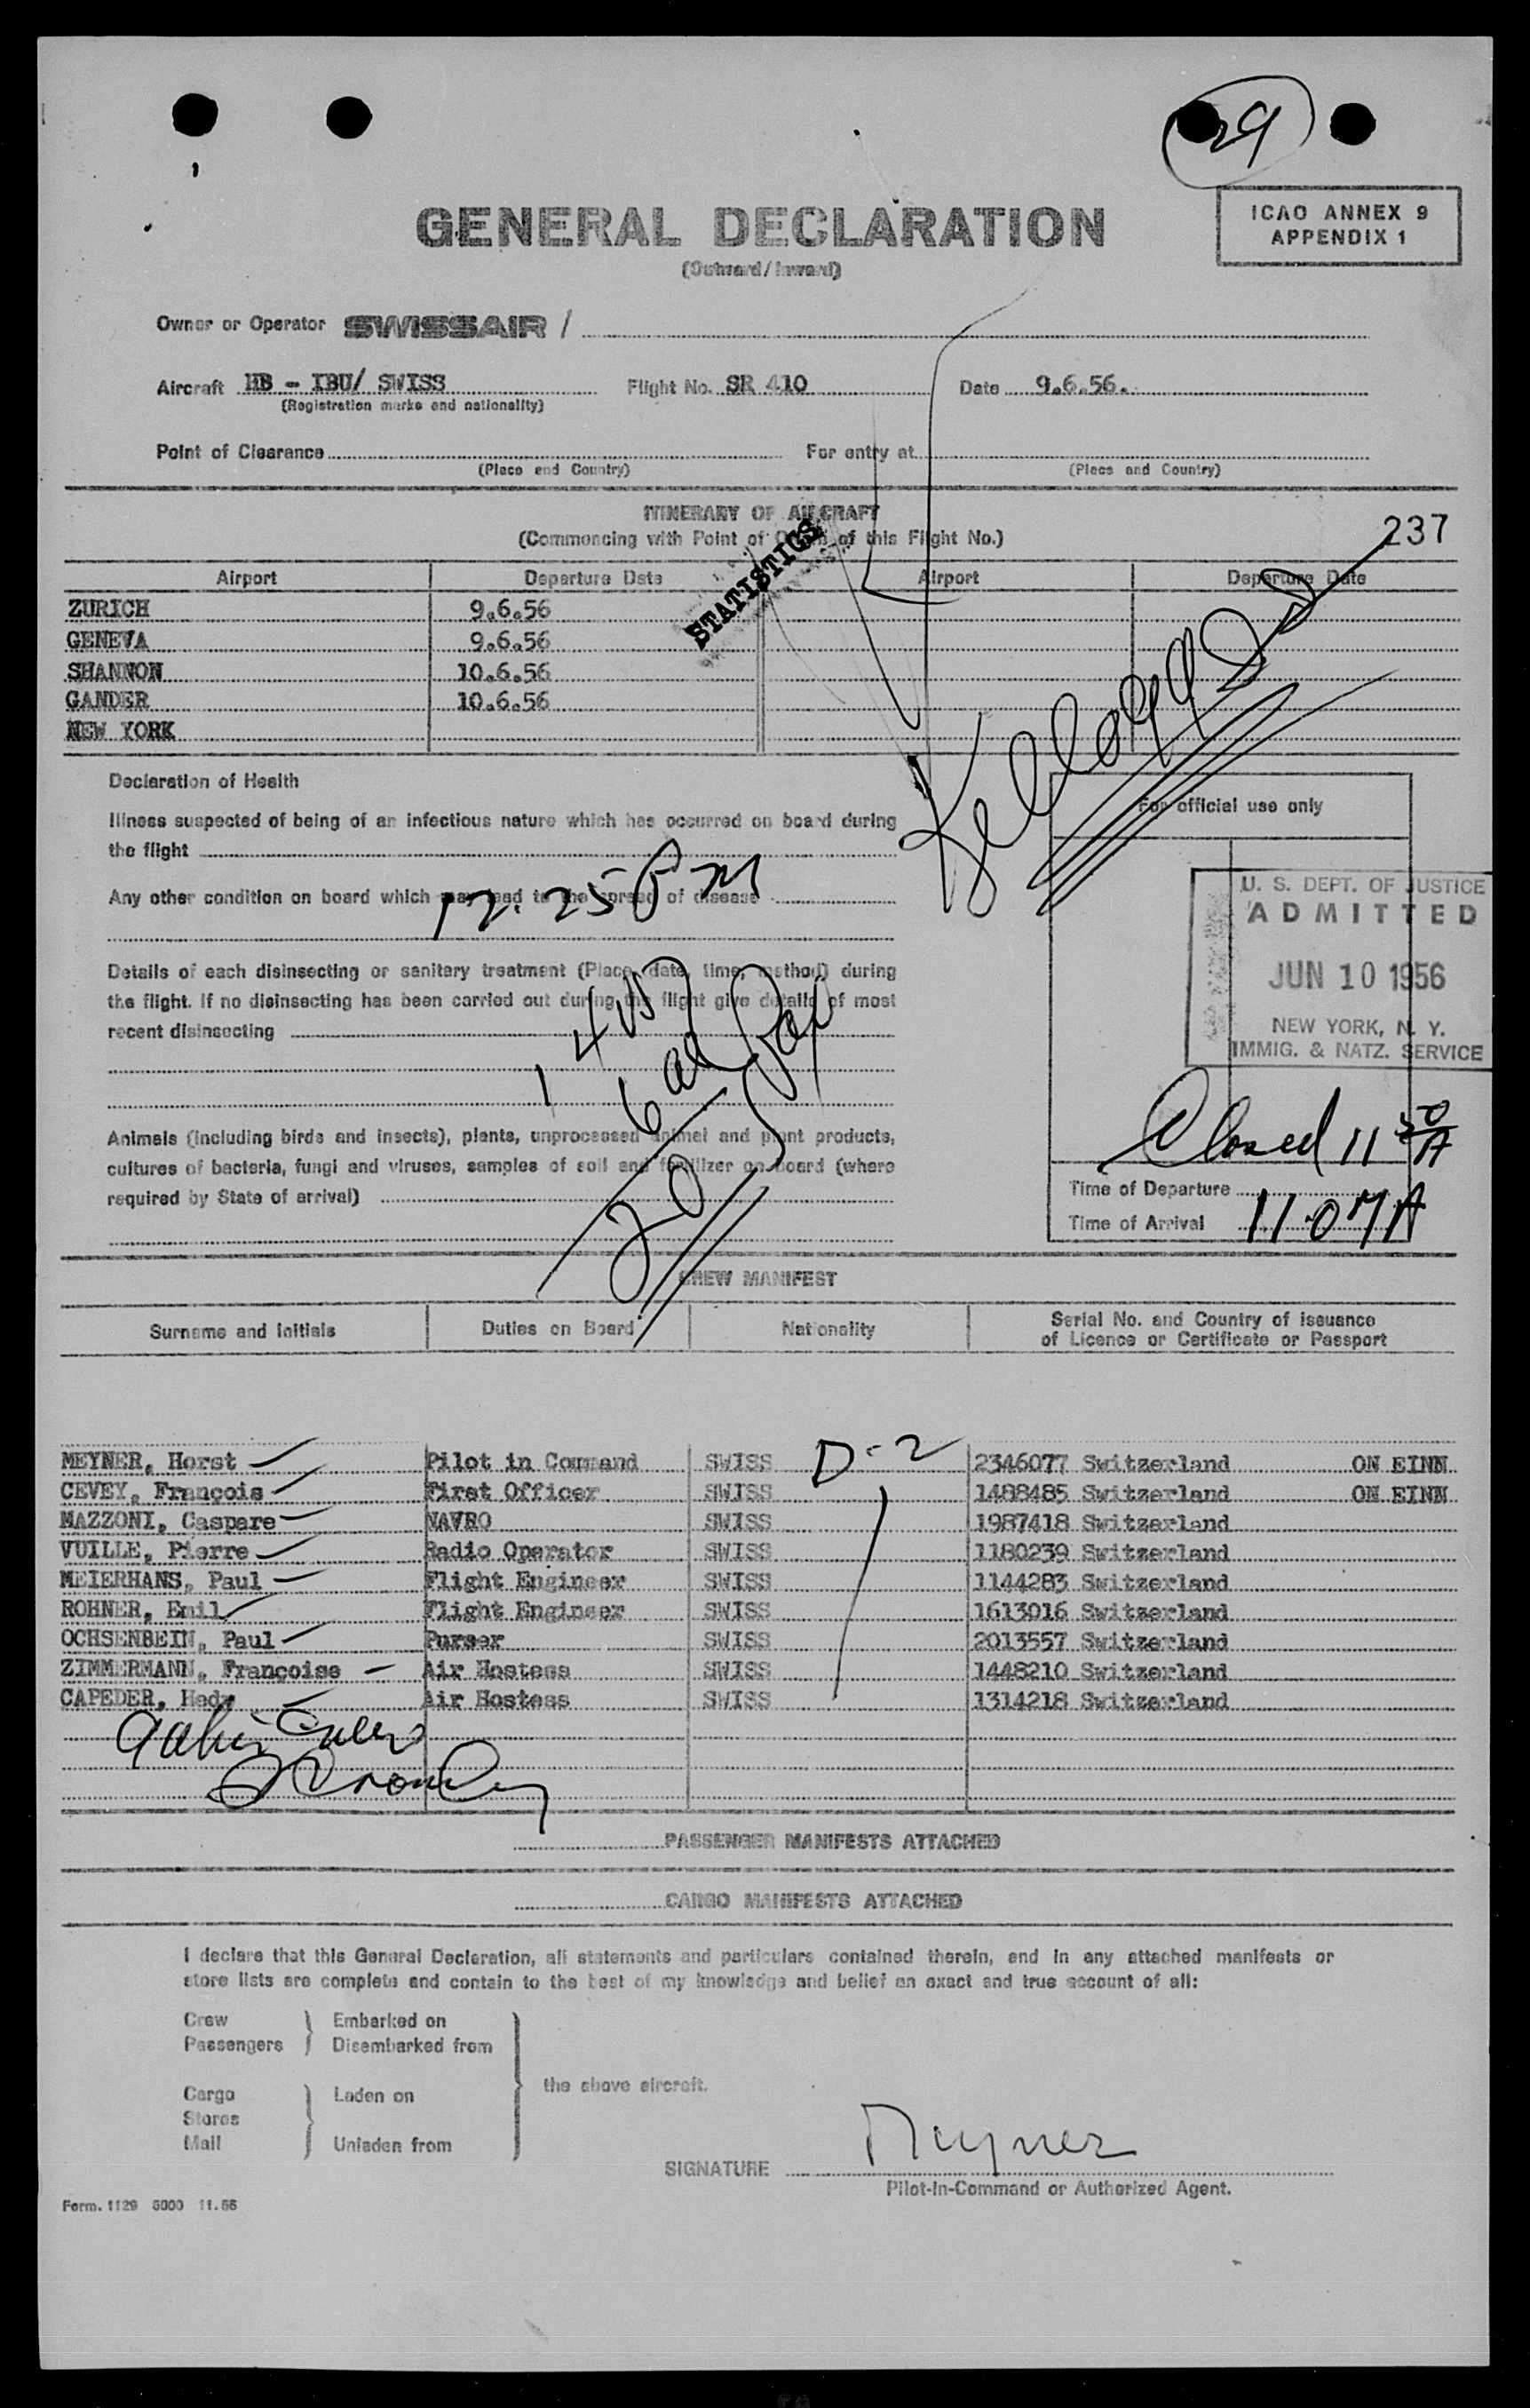 29
GENERAL DECLARATION
(Outward / Inward)
ICAO ANNEX 9
APPENDIX 1
Owner or Operator SWISSAIR /
Aircraft HB - IBU/ SWISS Flight No. SR 410 Date 9.6.56.
(Registration marks and nationality)
Point of Clearance For entry at
(Place and Country) (Place and Country)
ITINERARY OF AIRCRAFT
(Commencing with Point of Origin of this Flight No.)
237
STATISTICS
Airport Departure Date Airport Departure Date
ZURICH 9.6.56
GENEVA 9.6.56
SHANNON 10.6.56
GANDER 10.6.56
NEW YORK
Kellogg
Declaration of Health
Illness suspected of being of an infectious nature which has occurred on board during
the flight
12.25 PM
Any other condition on board which may lead to the spread of disease
Details of each disinsecting or sanitary treatment (Place, date, time, method) during
the flight. If no disinsecting has been carried out during the flight give details of most
recent disinsecting
14 USC
6 al
20 Pax
Animals (including birds and insects), plants, unprocessed animal and plant products,
cultures of bacteria, fungi and viruses, samples of soil and fertilizer on board (where
required by State of arrival)
For official use only
U. S. DEPT. OF JUSTICE
ADMITTED
JUN 10 1956
NEW YORK, N. Y.
IMMIG. & NATZ. SERVICE
Closed 11 50 A
Time of Departure
Time of Arrival 11.07 A
CREW MANIFEST
Surname and Initials Duties on Board Nationality Serial No. and Country of Issuance
of Licence or Certificate or Passport
D-2
MEYNER, Horst Pilot in Command SWISS 2346077 Switzerland ON EINN
CEVEY, François First Officer SWISS 1488485 Switzerland ON EINN
MAZZONI, Caspare NAVRO SWISS 1987418 Switzerland
VUILLE, Pierre Radio Operator SWISS 1180239 Switzerland
MEIERHANS, Paul Flight Engineer SWISS 1144283 Switzerland
ROHNER, Emil Flight Engineer SWISS 1613016 Switzerland
OCHSENBEIN, Paul Purser SWISS 2013557 Switzerland
ZIMMERMANN, Françoise Air Hostess SWISS 1448210 Switzerland
CAPEDER, Hedy Air Hostess SWISS 1314218 Switzerland
PASSENGER MANIFESTS ATTACHED
CARGO MANIFESTS ATTACHED
I declare that this General Declaration, all statements and particulars contained therein, and in any attached manifests or
store lists are complete and contain to the best of my knowledge and belief an exact and true account of all:
Crew Embarked on
Passengers Disembarked from
the above aircraft.
Cargo Laden on
Stores
Mail Unladen from
SIGNATURE Meyner
Pilot-in-Command or Authorized Agent.
Form. 1129 5000 11.55